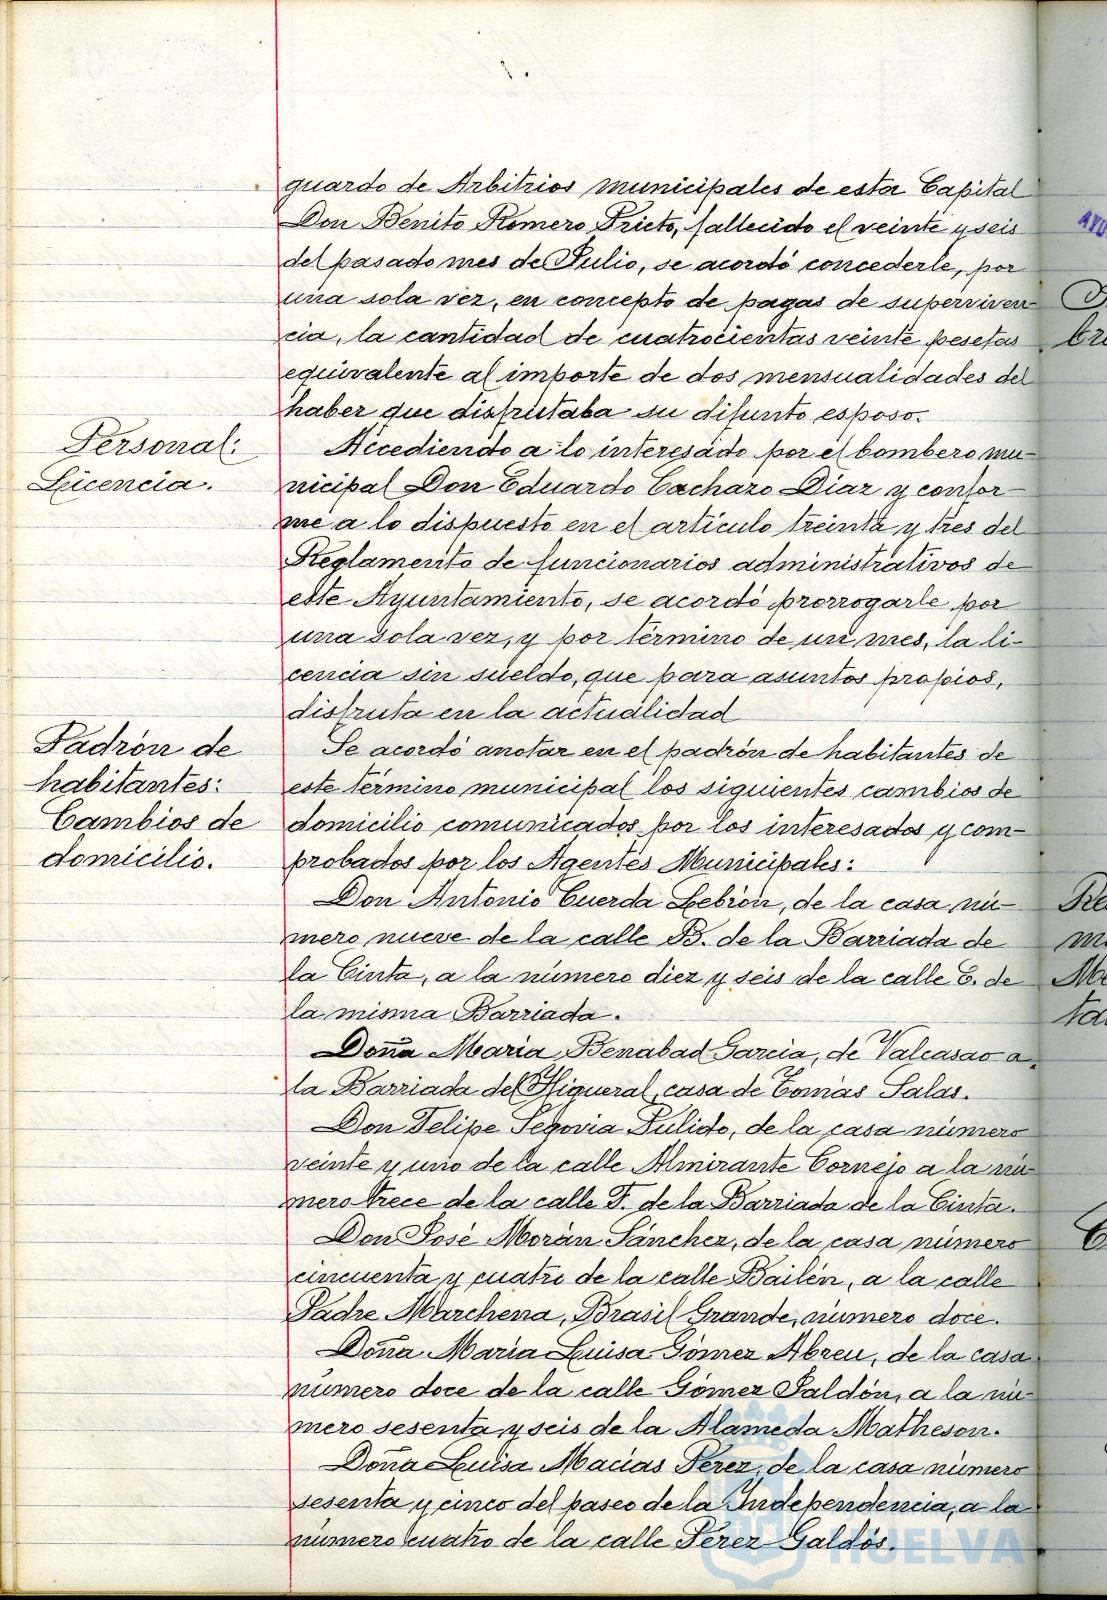 guardo de Arbitrios municipales de esta Capital
Don Benito Romero Prieto, fallecido el veinte y seis
del pasado mes de Julio, se acordó concederle, por
una sola vez, en concepto de pagas de superviven-
cia, la cantidad de cuatrocientas veinte pesetas
equivalente al importe de dos mensualidades del
haber que disfrutaba su difunto esposo.
Personal:
Licencia.
Accediendo a lo interesado por el bombero mu-
nicipal Don Eduardo Cachazo Díaz y confor-
me a lo dispuesto en el artículo treinta y tres del
Reglamento de funcionarios administrativos de
este Ayuntamiento, se acordó prorrogarle por
una sola vez, y por término de un mes, la li-
cencia sin sueldo, que para asuntos propios,
disfruta en la actualidad
Padrón de
habitantes:
Cambios de
domicilio.
Se acordó anotar en el padrón de habitantes de
este término municipal los siguientes cambios de
domicilio comunicados por los interesados y com-
probados por los Agentes Municipales:
Don Antonio Cuerda Lebrón, de la casa nú-
mero nueve de la calle B. de la Barriada de
la Cinta, a la número diez y seis de la calle C. de
la misma Barriada.
Doña María Benabad García, de Valcasao a
la Barriada del Higueral, casa de Tomás Salas.
Don Felipe Segovia Pulido, de la casa número
veinte y uno de la calle Almirante Cornejo a la nú-
mero trece de la calle F. de la Barriada de la Cinta.
Don José Morán Sánchez, de la casa número
cincuenta y cuatro de la calle Bailén, a la calle
Padre Marchena, Brasil Grande, número doce.
Doña María Luisa Gómez Abreu, de la casa
número doce de la calle Gómez Jaldón, a la nú-
mero sesenta y seis de la Alameda Matheson.
Doña Luisa Macías Pérez, de la casa número
sesenta y cinco del paseo de la Independencia, a la
número cuatro de la calle Pérez Galdós.
HUELVA